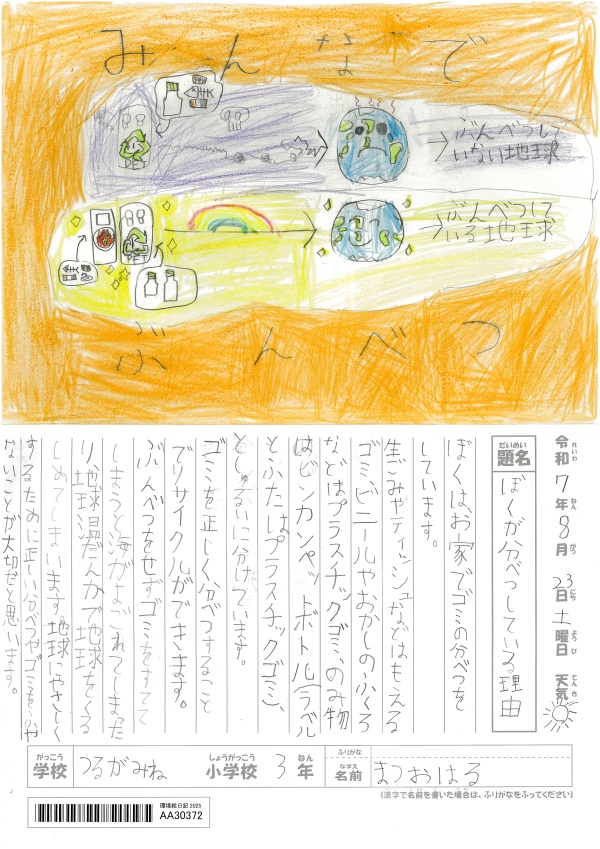 みんなで
PET
ぶんべつして
いない地球
PET
ぶんべつして
いる地球
ぶんべつ
令和7年8月23日土曜日 天気
れいわ ねん がつ にち ようび てんき
だいめい
題名
ぼくが分べつしている理由
ぼくは、お家でゴミの分べつを
しています。
生ごみやティッシュなどはもえる
ゴミ、ビニールやおかしのふくろ
などはプラスチックゴミ、のみ物
はビンカンペットボトル(ラベル
と、ふたはプラスチックゴミ)、
としゅるいに分けています。
ゴミを正しく分べつすること
でリサイクルができます。
ぶんべつをせずゴミをすてて
しまうと海がよごれてしまった
り、地球温だんかで地球をくる
しめてしまいます。地球にやさしく
するために正しい分べつやゴミをふや
ないことが大切だと思います。
がっこう
学校
つるがみね
しょうがっこう
小学校
3
ねん
年
ふりがな
なまえ
名前
まつおはる
(漢字で名前を書いた場合は、ふりがなをふってください)
環境絵日記 2025
AA30372